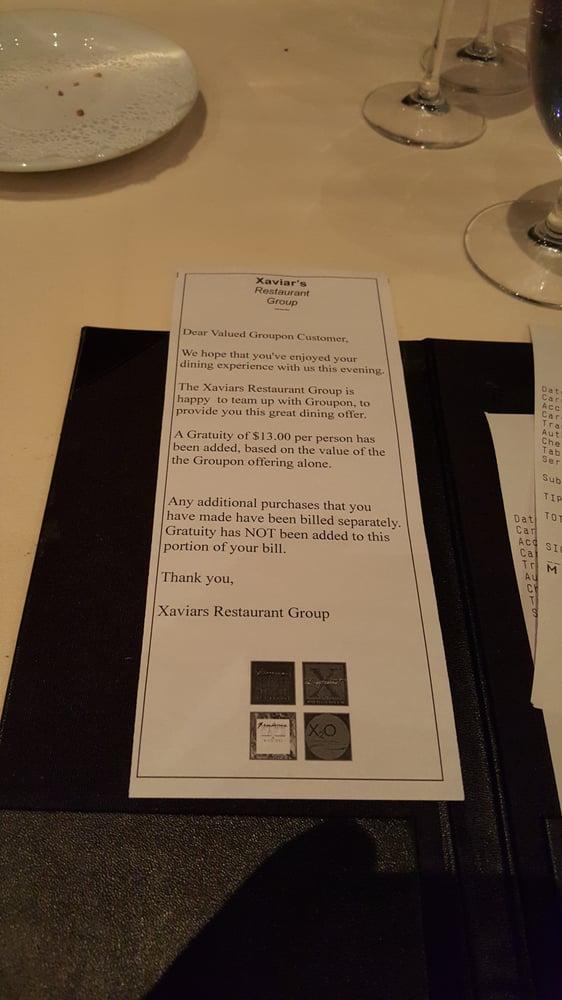 Xaviar's
Restaurant
Group
Dear Valued Groupon Customer,
We hope that you've enjoyed your
dining experience with us this evening.
The Xaviars Restaurant Group is
happy to team up with Groupon, to
provide you this great dining offer.
A Gratuity of $13.00 per person has
been added, based on the value of the
the Groupon offering alone.
Any additional purchases that you
have made have been billed separately.
Gratuity has NOT been added to this
portion of your bill.
Thank you,
Xaviars Restaurant Group
X
X2O
Dat
Car
Acc
Ca
Tr
Au
Ch
T
S
Dat
Car
Acc
Car
Tra
Aut
Che
Tab
Ser
Sub
TIP
TOT
SI
M